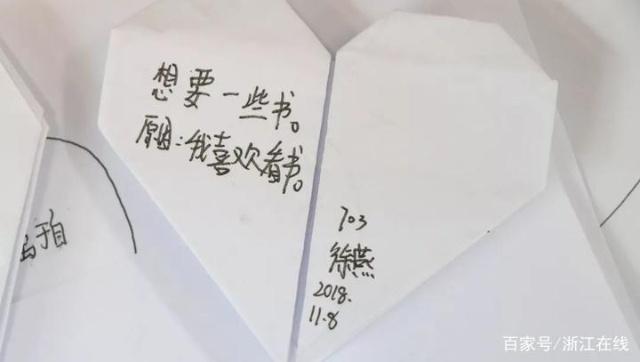 想要一些书。
原因:我喜欢看书。
703
徐燕
2018.
11.8
百家号/浙江在线